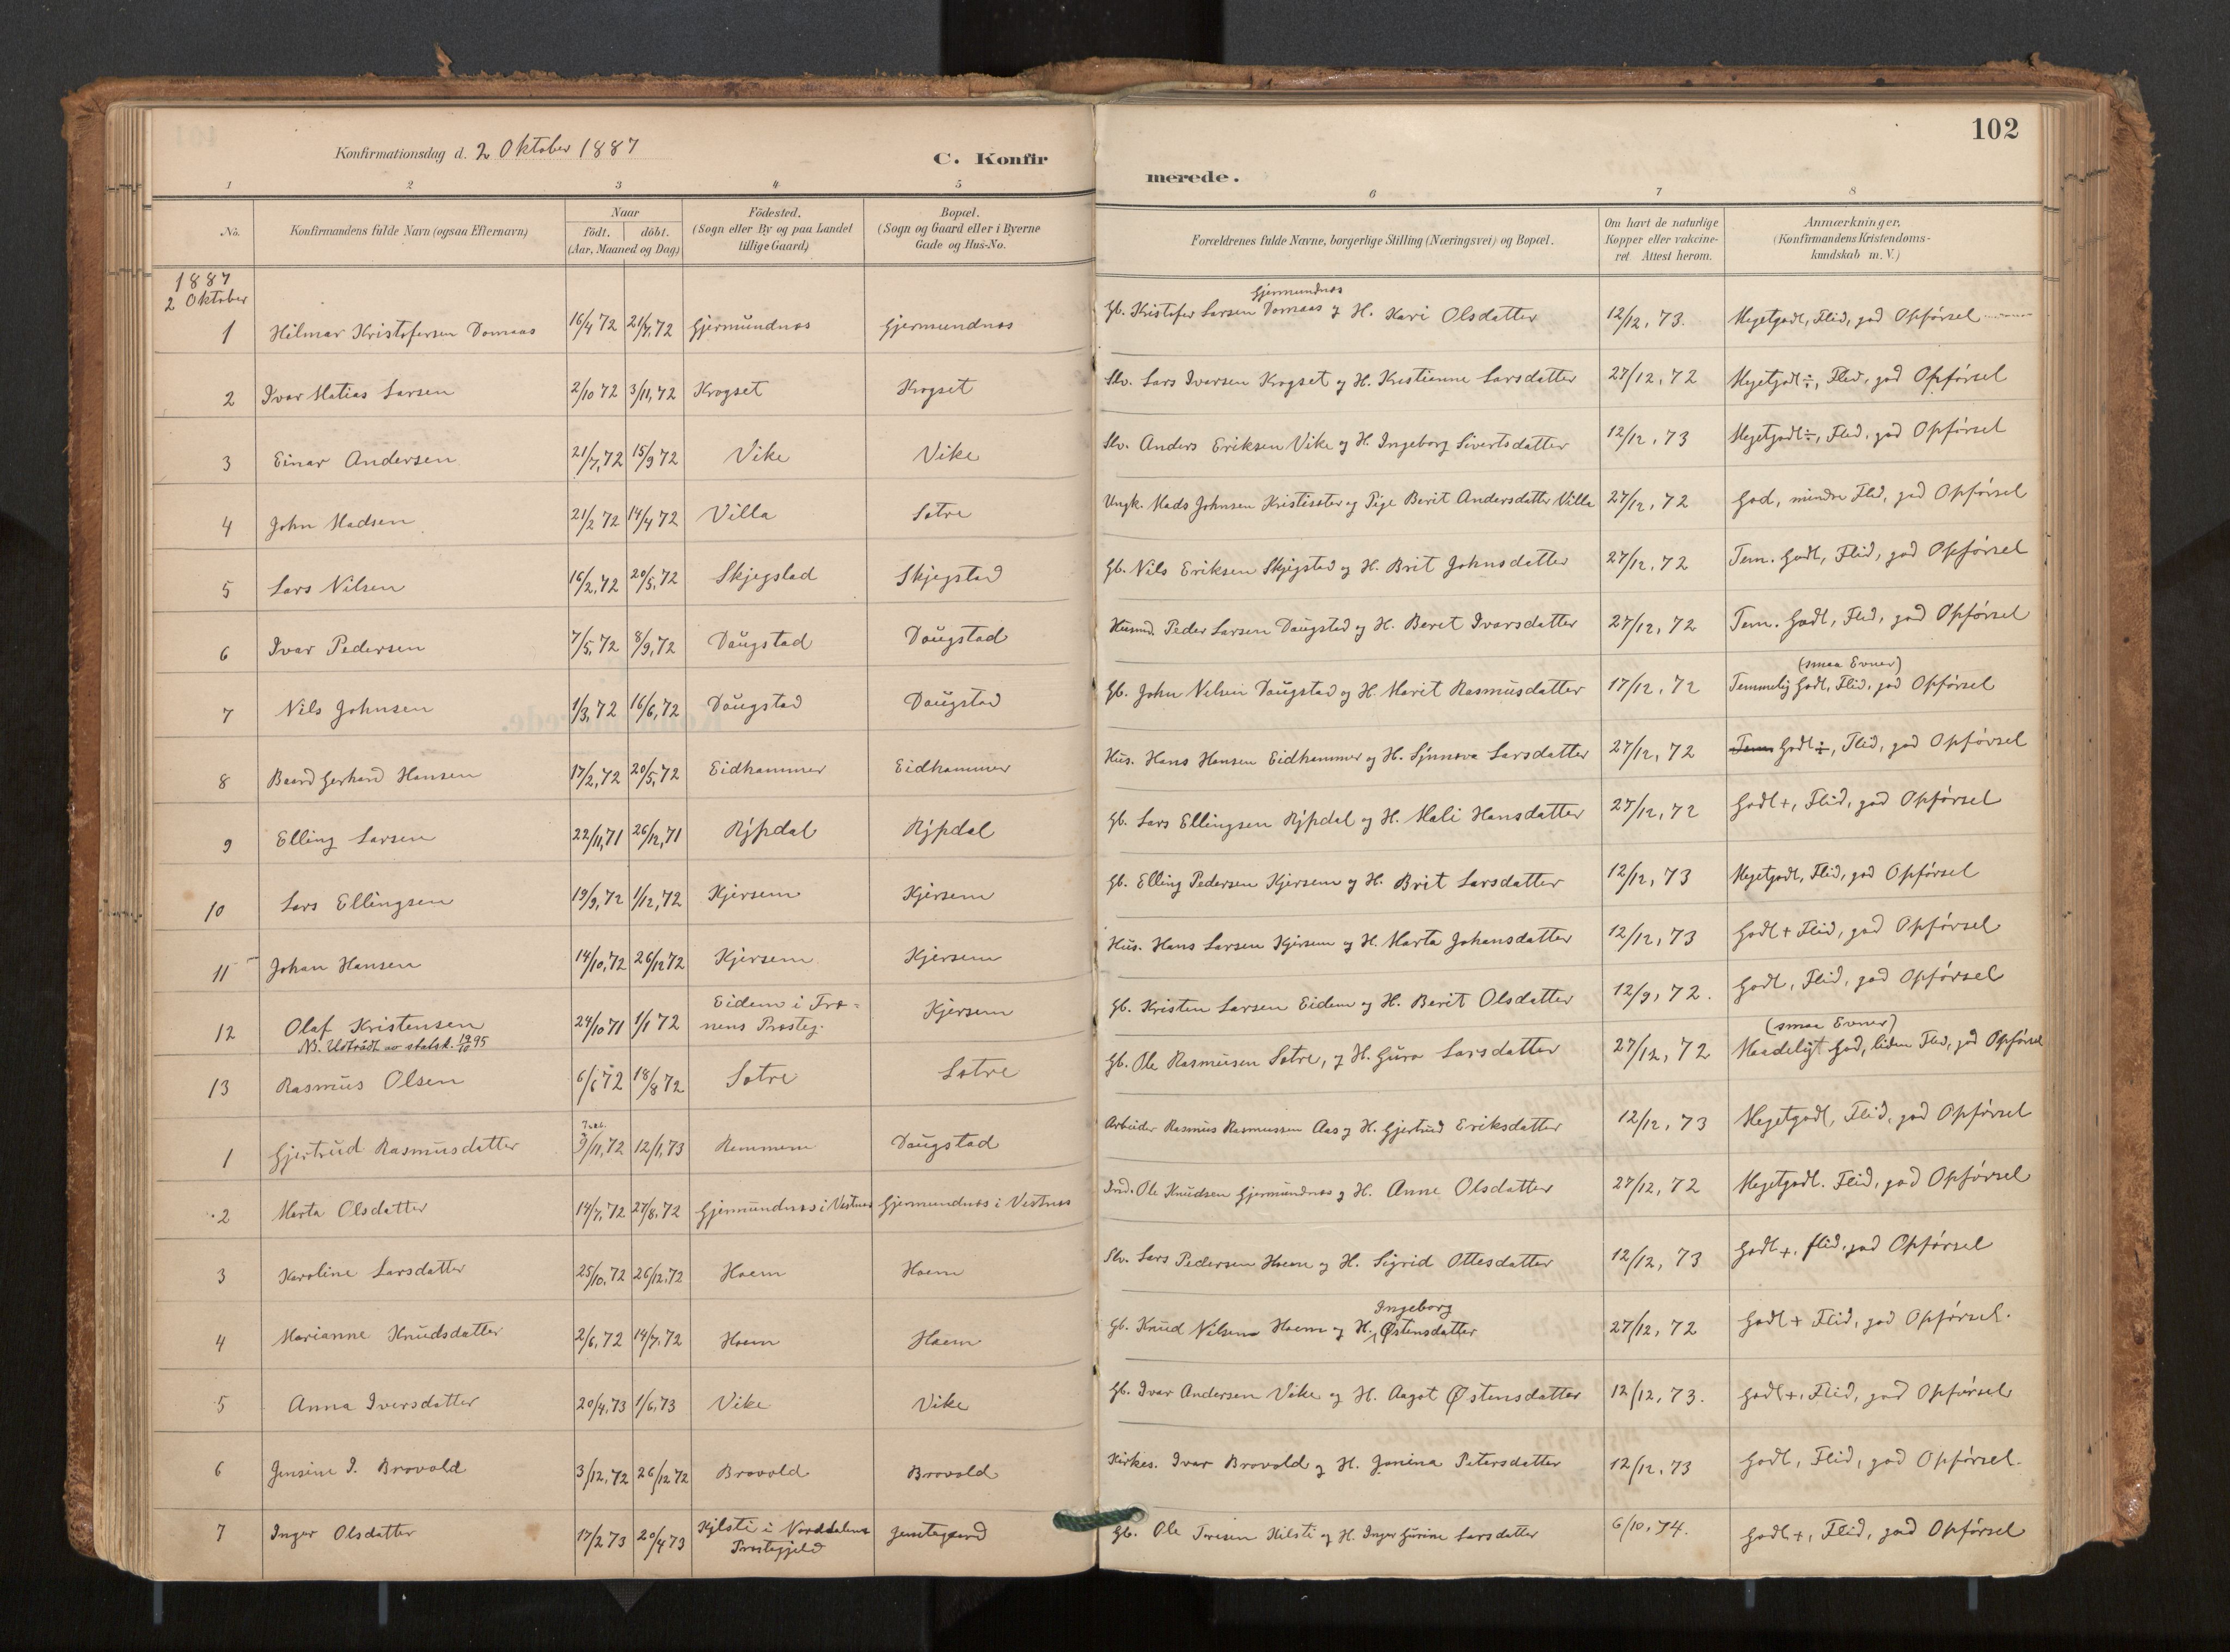 102
Konfirmationsdag d. 2 Oktober 1887
C. Konfirmerede.
1 2 3 4 5 6 7 8
No. Konfirmandens fulde Navn (ogsaa Efternavn) Naar födt. döbt. (Aar, Maaned og Dag) Födested. (Sogn eller By og paa Landet tillige Gaard) Bopæl. (Sogn og Gaard eller i Byerne Gade og Hus-No. Forældrenes fulde Navne, borgerlige Stilling (Næringsvei) og Bopæl. Om havt de naturlige Kopper eller vakcineret. Attest herom. Anmærkninger, (Konfirmandens Kristendomskundskab m. V.)
1887
2 Oktober
1 Hilmar Kristofersen Domaas 16/4 72 21/7, 72 Gjermundnæs Gjermundnæs Gb. Kristofer Larsen Domaas Gjermundnæs og H. Kari Olsdatter 12/12, 73. Megetgodt, Flid, god Opførsel
2 Ivar Matias Larsen 2/10 72 3/11, 72 Krogset Krogset Slv. Lars Ivarsen Krogset og H. Kristianne Larsdatter 27/12, 72 Megetgodt÷, Flid, god Opførsel
3 Einar Andersen 21/7, 72 15/9 72 Vike Vike Slv. Anders Eriksen Vike og H. Ingeborg Sivertsdatter 12/12, 73 Megetgodt÷, Flid, god Opførsel
4 John Madsen 21/2 72 14/4 72 Villa Sætre Ungk. Mads Johnsen Kristisæter og Pige Berit Andersdatter Villa 27/12, 72 God, mindre Flid, god Opførsel
5 Lars Nilsen 16/2, 72 20/5, 72 Skjegstad Skjegstad Gb. Nils Eriksen Skjegstad og H. Brit Johnsdatter 27/12, 72 Tem. Godt, Flid, god Opførsel
6 Ivar Pedersen 7/5, 72 8/9, 72 Daugstad Daugstad Husmd. Peder Larsen Daugstad og H. Beret Ivarsdatter 27/12, 72 Tem. Godt, Flid, god Opførsel
7 Nils Johnsen 1/3, 72 16/6, 72 Daugstad Daugstad Gb. John Nilsen Daugstad og H. Marit Rasmusdatter 17/12, 72 Temmelig Godt, (smaa Evner) Flid, god Opførsel
8 Baard Gerhard Hansen 17/2, 72 20/5, 72 Eidhammer Eidhammer Hus. Hans Hansen Eidhammer og H. Synnøva Larsdatter 27/12, 72 Tem Godt÷, Flid, god Opførsel
9 Elling Larsen 22/11, 71 26/12, 71 Rypdal Rypdal Gb. Lars Ellingsen Rypdal og H. Mali Hansdatter 27/12, 72 Godt+, Flid, god Opførsel
10 Lars Ellingsen 19/9, 72 1/12, 72 Kjersem Kjersem Gb. Elling Pedersen Kjersem og H. Brit Larsdatter 12/12, 73 Megetgodt, Flid, god Opførsel
11 Johan Hansen 14/10, 72 26/12 72 Kjersem Kjersem Hus. Hans Larsen Kjersem og H. Marta Johansdatter 12/12, 73 Godt + Flid, god Opførsel
12 Olaf Kristensen 24/10 71 1/1 72 Eidem i Træ=nens Præsteg. Kjersem Gb. Kristen Larsen Eidem og H. Berit Olsdatter 12/9, 72. Godt, Flid, god Opførsel
NB. Udtrådt av statsk. 19/10 95
13 Rasmus Olsen 6/6 72 18/8 72 Sætre Sætre Gb. Ole Rasmusen Sætre, og H. Guro Larsdatter 27/12, 72 (smaa Evner) Maadeligt God, liden Flid, god Opførsel
1 Gjertrud Rasmusdatter 9/11, 72 12/1, 73 Remmem Daugstad Arbeider Rasmus Rasmussen Aas og H. Gjertrud Eriksdatter 12/12, 73 Megetgodt, Flid, god Opførsel
2 Marta Olsdatter 14/7, 72 27/8, 72 Gjermundnæs i Vestnæs Gjermundnæs i Vestnæs Ind. Ole Knudsen Gjermundnæs og H. Anne Olsdatter 27/12, 72 Megetgodt. Flid, god Opførsel
3 Karoline Larsdatter 25/10, 72 26/12, 72 Hoem Hoem Slv. Lars Pedersen Hoem og H. Sigrid Ottesdatter 12/12, 73 Godt+, flid, god Opførsel
4 Marianne Knudsdatter 2/6, 72 14/7, 72 Hoem Hoem Gb. Knud Nilsen Hoem og H. Ingeborg Østensdatter 27/12, 72 Godt + Flid, god Opførsel.
5 Anna Iversdatter 20/4, 73 1/6, 73 Vike Vike Gb. Ivar Andersen Vike og H. Aagot Østensdatter 12/12, 73. Godt+, Flid, god Opførsel
6 Jensine I. Brovold 3/12, 72 26/12 72 Brovold Brovold Kirkes. Ivar Brovold og H. Janina Petersdatter 12/12, 73 Godt, Flid, god Opførsel.
7 Inger Olsdatter 17/2 73 20/4 73 Kjlsti i Norddalens Præstegjeld Gb. Ole Hilsti og H. Inger Gurine Larsdatter 6/10, 74. Godt+, Flid, god Opførsel